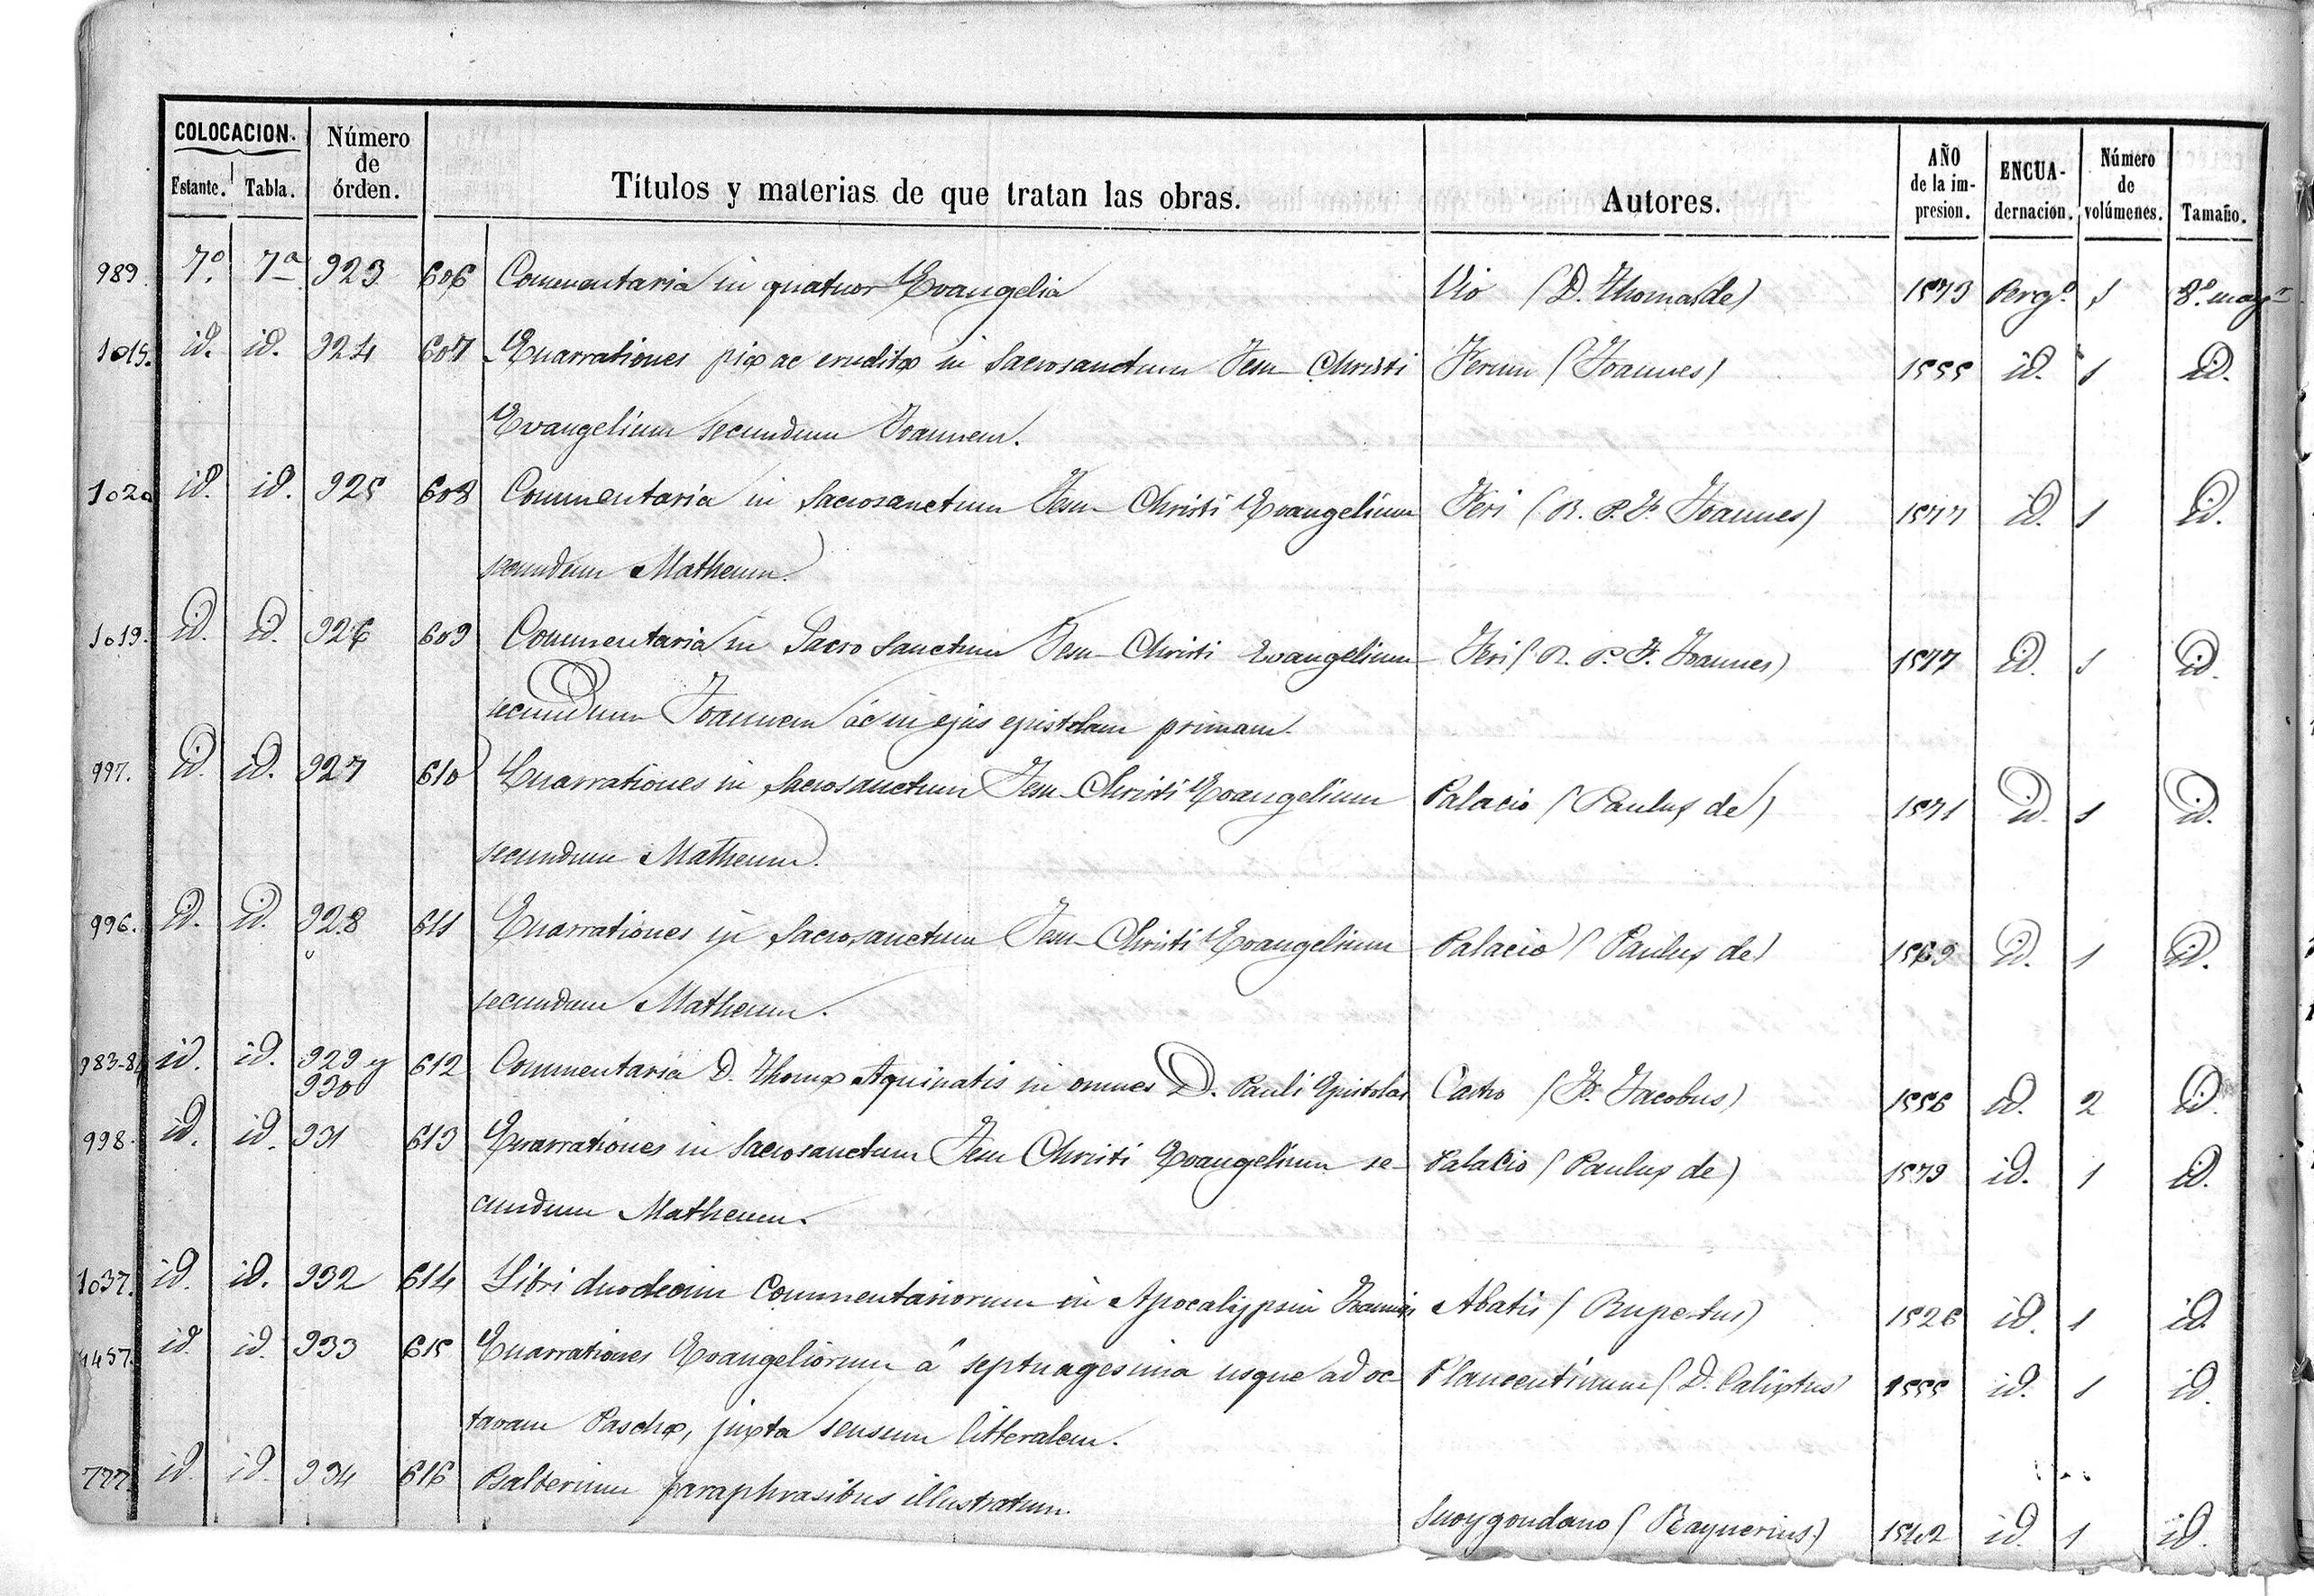 COLOCACION. Número de órden. Títulos y materias de que tratan las obras. Autores. AÑO de la impresion. ENCUADERNACION. Número de volúmenes. Tamaño.
Estante. Tabla.
989. 7º. 7ª 923 606 Commentaria in quatuor Evangelia Vio (D. Thomas de) 1573 Pergº. 1 8º. mayr
1015. id. id. 924 607 Enarrationes piæ ac eruditæ in Sacrosanctum Jesu-Christi Ferum (Joannes) 1555 id. 1 id.
Evangelium secundum Joannem.
1020 id. id. 925 608 Commentaria in Sacrosanctum Jesu-Christi Evangelium Feri (R. P. F. Joannes) 1577 id. 1 id.
secundum Matheum.
1019. id. id. 926 609 Commentaria in Sacro Sanctum Jesu-Christi Evangelium Feri (R. P. F. Joannes) 1577 id. 1 id.
secundum Joannem ac in ejus epistolam primam.
997. id. id. 927 610 Enarrationes in Sacrosanctum Jesu-Christi Evangelium Palacio (Paulus de) 1571 id. 1 id.
secundum Matheum.
996. id. id. 928 611 Enarrationes in Sacrosanctum Jesu-Christi Evangelium Palacio (Paulus de) 1569 id. 1 id.
secundum Matheum.
983-84 id. id. 929 y 612 Commentaria D. Thomæ Aquinatis in omnes D. Pauli Epistolas Castro (F. Jacobus) 1556 id. 2 id.
930
998. id. id. 931 613 Enarrationes in Sacrosanctum Jesu Christi Evangelium se- Palacio (Paulus de) 1579 id. 1 id.
cundum Matheum.
1037. id. id. 932 614 Libri duodecim Commentariorum in Apocalypsin Joannis Abatis (Rupertus) 1526 id. 1 id.
1457. id. id. 933 615 Enarrationes Evangeliorum á septuagesima usque ad oc- Plancentinum (D. Calixtus) 1555 id. 1 id.
tavam Paschæ, juxta sensum litteralem.
777. id. id. 934 616 Psalterium paraphrasibus illustratum. Snoygoudano (Raynerius) 1542 id. 1 id.